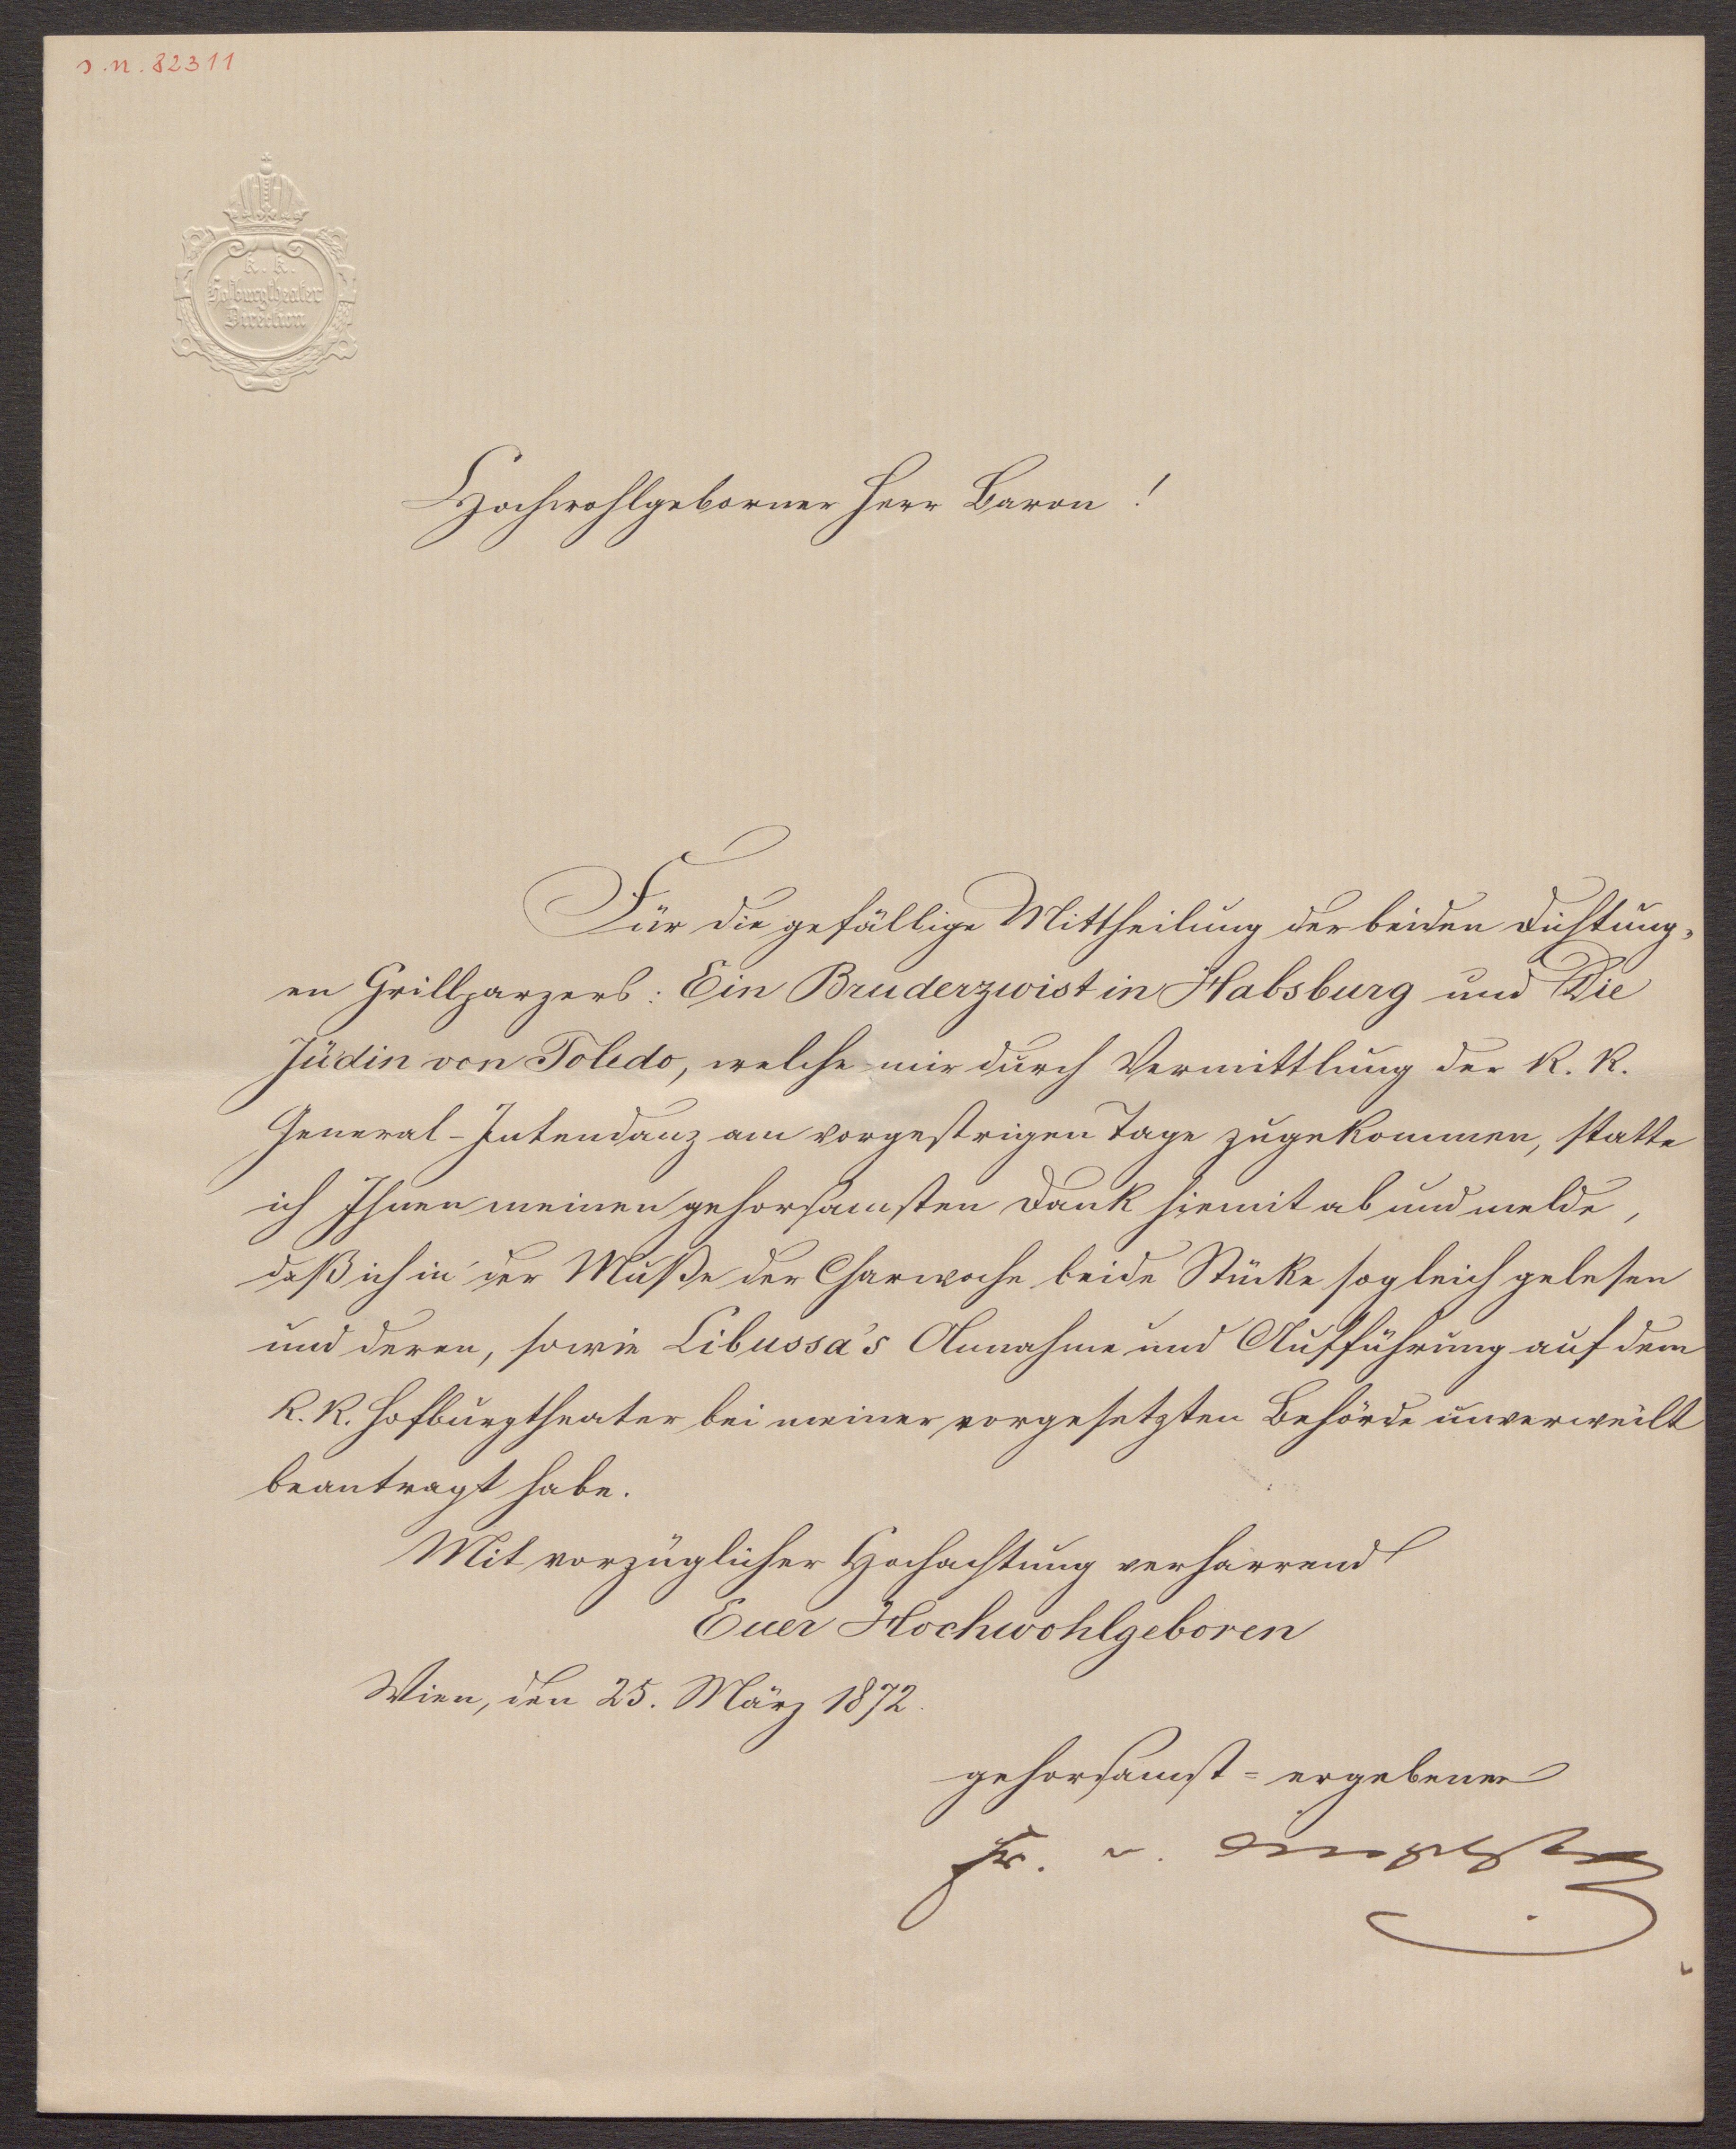 J. N. 82311
K. K.
Hofburgtheater
Direction
Hochwohlgeborner Herr Baron!
Für die gefällige Mittheilung der beiden Dichtung-
en Grillparzers: Ein Bruderzwist in Habsburg und Die
Jüdin von Toledo, welche mir durch Vermittlung der K. K.
General-Intendanz am vorgestrigen Tage zugekommen, statte
ich Ihnen meinen gehorsamsten Dank hiemit ab und melde,
daß ich in der Muße der Charwoche beide Stücke sogleich gelesen
und deren, sowie Libussa's Annahme und Aufführung auf dem
K. K. Hofburgtheater bei meiner vorgesetzten Behörde unverweilt
beantragt habe.
Mit vorzüglicher Hochachtung verharrend
Euer Hochwohlgeboren
Wien, den 25. März 1872.
gehorsamst-ergebener
Fr. v. Dingelstedt